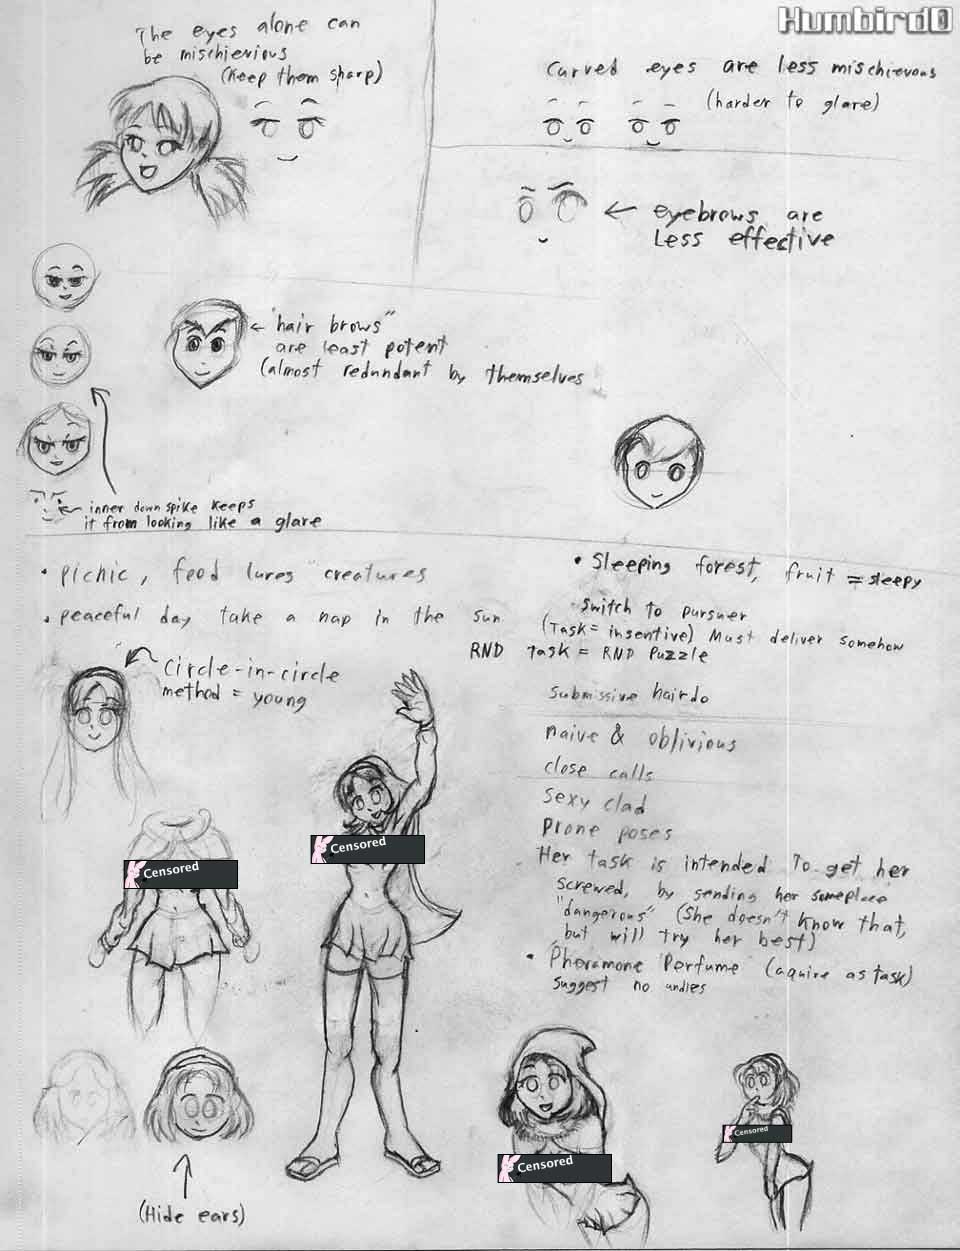 Humbird0
The eyes alone can
be mischievious
(keep them sharp)
Curved eyes are less mischievous
(harder to glare)
← eyebrows are
Less effective
← "hair brows"
are least potent
(almost redundant by themselves
inner down spike keeps
it from looking like a glare
• picnic, food lures creatures
• peaceful day take a nap in the sun
• Sleeping forest, fruit = sleepy
switch to pursuer
(Task = insentive) Must deliver somehow
RND task = RND Puzzle
Circle-in-circle
method = young
submissive hairdo
naive & oblivious
close calls
sexy clad
prone poses
Her task is intended to get her
screwed, by sending her someplace
"dangerous" (she doesn't know that,
but will try her best)
• Pheramone Perfume (aquire as task)
suggest no undies
Censored
Censored
Censored
Censored
(Hide ears)